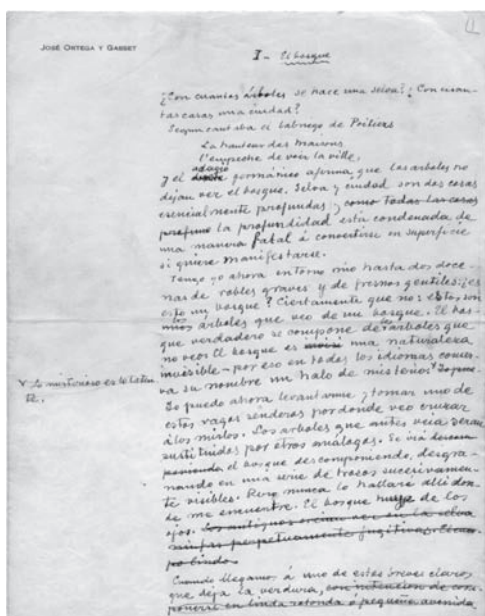 1
JOSÉ ORTEGA Y GASSET
I - El bosque
¿Con cuantos árboles se hace una selva? ¿Con cuan-
tas casas una ciudad?
Segun cantaba el labriego de Poitiers
La hauteur des maisons
l'empeche de voir la ville,
adagio
y el germánico afirma, que los arboles no
dejan ver el bosque. Selva y ciudad son dos cosas
esencialmente profundas; como todas las cosas
la profundidad está condenada de
una manera fatal á convertirse en superficie
si quiere manifestarse.
Tengo yo ahora entorno mio hasta dos doce-
nas de robles graves y de fresnos gentiles: ¿es
esto un bosque? Ciertamente que no: estos son
los árboles que veo de un bosque. El bos-
que verdadero se compone de los arboles que
no veo. El bosque es una naturaleza
invisible - por eso en todos los idiomas conser-
va su nombre un halo de misterio.
Lo misterioso es lo laten-
te.
Yo puedo ahora levantarme y tomar uno de
estos vagos senderos por donde veo cruzar
á los mirlos. Los arboles que antes veia seran
sustituidos por otros análogos. Se irá
el bosque descomponiendo, desgra-
nando en una serie de trozos sucesivamen-
te visibles. Pero nunca lo hallaré alli don-
de me encuentre. El bosque huye de los
ojos. Los antiguos creian ver en la selva
ninfas perpetuamente fugitivas.
Cuando llegamos á uno de estos breves claros
que deja la verdura, con intencion de com-
ponerse en linda rotonda ó pequeña avenida